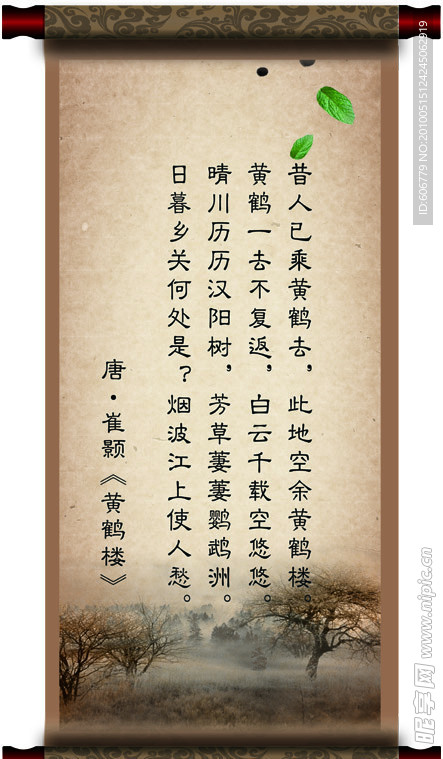 昔人已乘黄鹤去，此地空余黄鹤楼。
黄鹤一去不复返，白云千载空悠悠。
晴川历历汉阳树，芳草萋萋鹦鹉洲。
日暮乡关何处是？烟波江上使人愁。
唐·崔颢《黄鹤楼》
ID:606779 NO:20100515124245062919
昵图网 www.nipic.cn